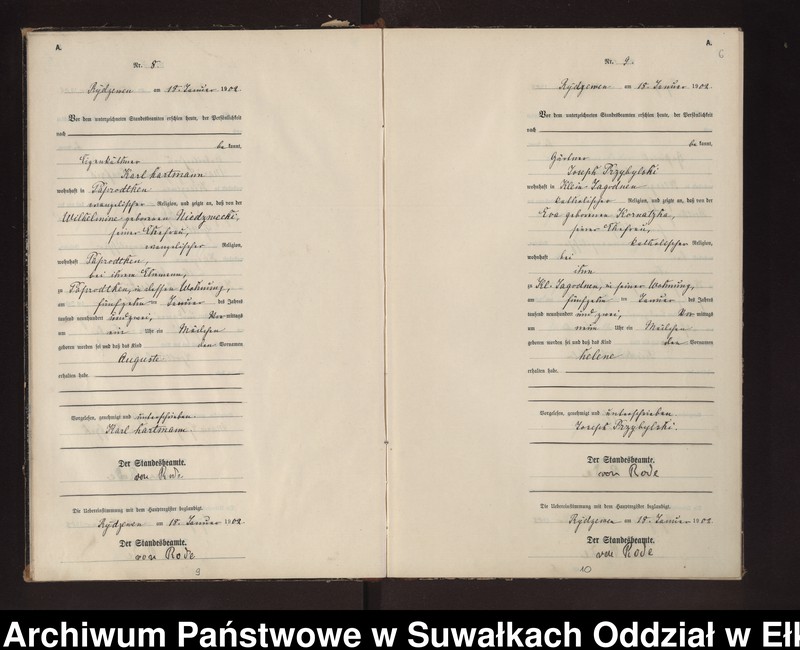 A.
Nr. 8.
Rydzewen am 18. Januar 1902.
Vor dem unterzeichneten Standesbeamten erschien heute, der Persönlichkeit
nach
be kannt,
Eigenkäthner
Karl Hartmann
wohnhaft in Paprodtken
evangelischer Religion, und zeigte an, daß von der
Wilhelmine geborenen Niedzwetzki,
seiner Ehefrau,
evangelischer Religion,
wohnhaft Paprodtken,
bei ihrem Ehemann,
zu Paprodtken, in dessen Wohnung,
am fünfzehn ten Januar des Jahres
tausend neunhundert und zwei, Vor mittags
um ein Uhr ein Mädchen
geboren worden sei und daß das Kind den Vornamen
Auguste
erhalten habe.
Vorgelesen, genehmigt und unterschrieben.
Karl Hartmann.
Der Standesbeamte.
von Rode
Die Uebereinstimmung mit dem Hauptregister beglaubigt.
Rydzewen am 18. Januar 1902.
Der Standesbeamte.
von Rode
9
A.
6
Nr. 9.
Rydzewen am 18. Januar 1902.
Vor dem unterzeichneten Standesbeamten erschien heute, der Persönlichkeit
nach
be kannt,
Gärtner
Joseph Przybylski
wohnhaft in Klein Jagodnen
katholischer Religion, und zeigte an, daß von der
Eva geborenen Kornatzka,
seiner Ehefrau,
katholischer Religion,
wohnhaft bei
ihm
zu Kl. Jagodnen, in seiner Wohnung,
am fünfzehn ten Januar des Jahres
tausend neunhundert und zwei, Vor mittags
um neun Uhr ein Mädchen
geboren worden sei und daß das Kind den Vornamen
Helene
erhalten habe.
Vorgelesen, genehmigt und unterschrieben.
Joseph Przybylski.
Der Standesbeamte.
von Rode
Die Uebereinstimmung mit dem Hauptregister beglaubigt.
Rydzewen am 18. Januar 1902.
Der Standesbeamte.
von Rode
10
Archiwum Państwowe w Suwałkach Oddział w Ełk